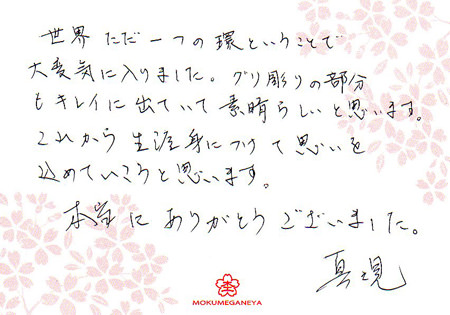 世界ただ一つの環ということで
大変気に入りました。グリ彫りの部分
もキレイに出ていて素晴らしいと思います。
これから生涯身につけて思いを
込めていこうと思います。
本当にありがとうございました。
真現
MOKUMEGANEYA